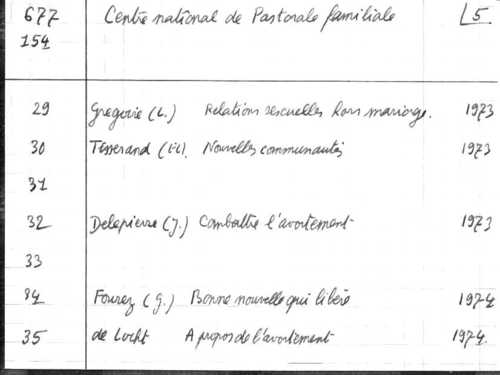 677 Centre national de Pastorale familiale L5
154
29 Grégoire (L.) Relations sexuelles hors mariage. 1973
30 Tesserand Nouvelles communautés 1973
31
32 Delepierre (J.) Combattre l'avortement 1973
33
34 Fourez (G.) Bonne nouvelle qui libère 1974
35 de Locht A propos de l'avortement 1974.